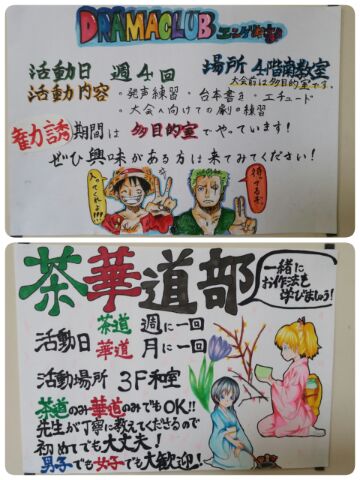 DRAMACLUB エンゲキ部
活動日 週4回 場所 4階南教室
大会前は多目的室です。
活動内容 ・発声練習・台本書き・エチュード
・大会へ向けての劇の練習
勧誘期間は多目的室でやっています!
ぜひ興味がある方は来てみてください!
入ってくれよ!!!
待ってるぞ。
茶華道部
一緒に
お作法を
学びましょう!
活動日 茶道 週に一回
華道 月に一回
活動場所 3F和室
茶道のみ華道のみでもOK!!
先生が丁寧に教えてくださるので
初めてでも大丈夫!
男子でも女子でも大歓迎!